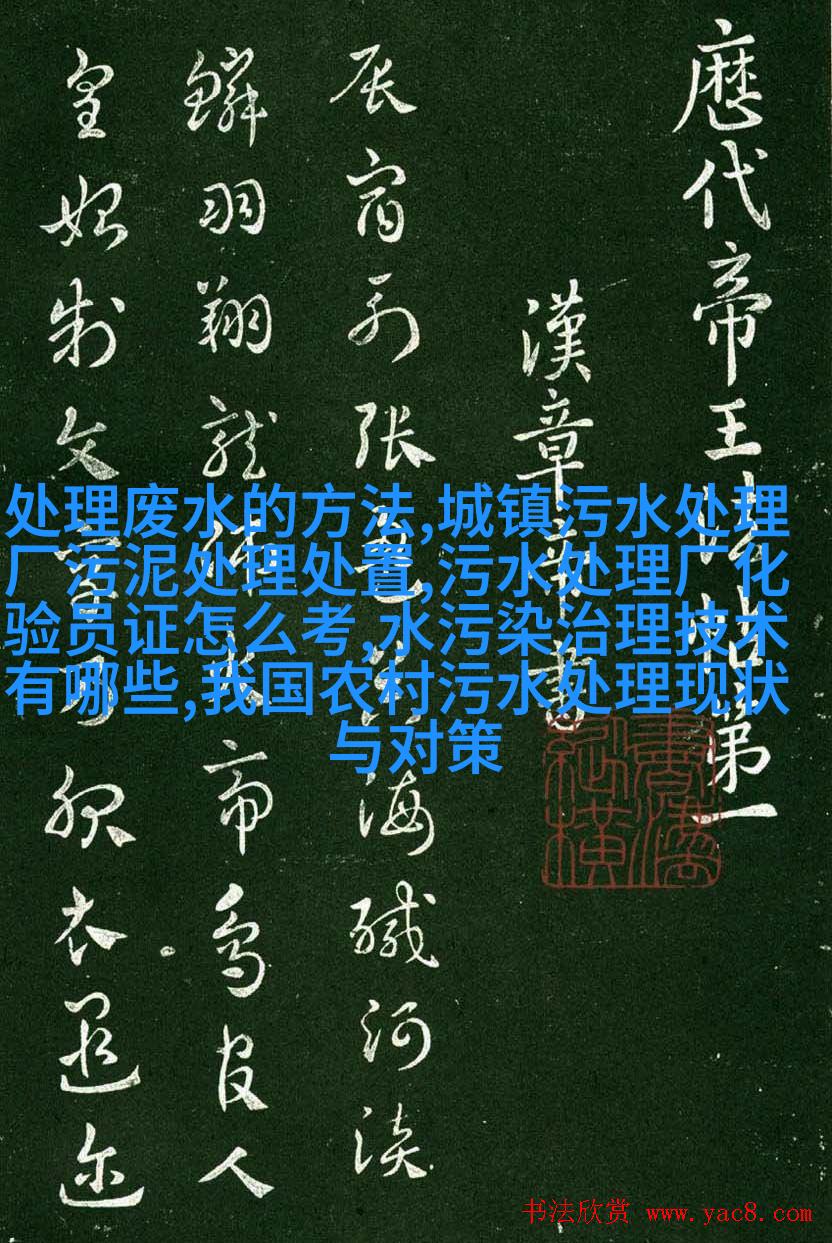 歷代帝王法帖第一
漢章帝書
辰宿列張海鹹河淡
鱗羽翔龍師火帝鳥官人
皇始制文字乃服衣遐迩
处理废水的方法,城镇污水处理
厂污泥处理处置,污水处理厂化
验员证怎么考,水污染治理技术
有哪些,我国农村污水处理现状
与对策
书法欣赏 www.yac8.com